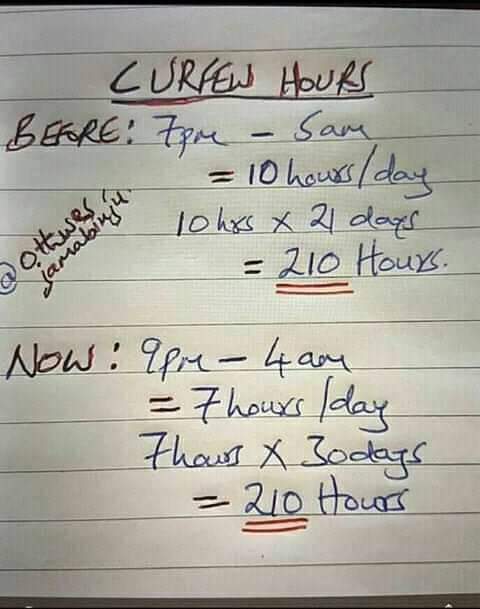 CURFEW HOURS
BEFORE: 7pm - 5am
= 10 hours/day
10hrs x 21 days
= 210 Hours.
NOW: 9pm - 4am
= 7 hours/day
7 hours x 30 days
= 210 Hours